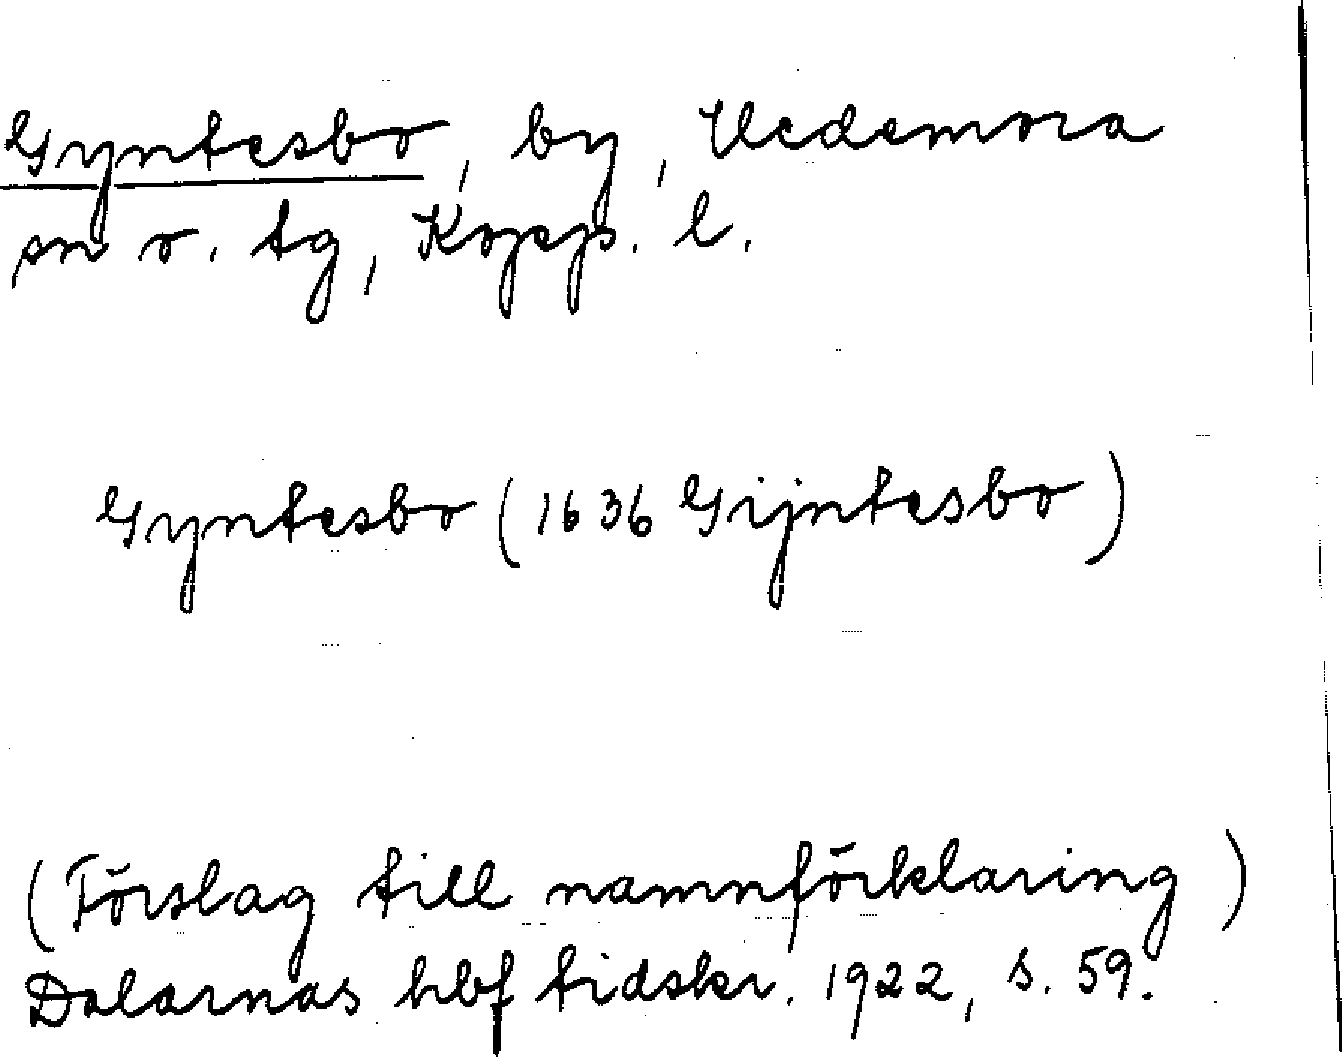 Gyntesbo, by, Vedemora
sn o. tg, Kopp. l.
Gyntesbo (1636 Gijntesbo)
(Förslag till namnförklaring)
Dalarnas hbf tidskr. 1922, s. 59.